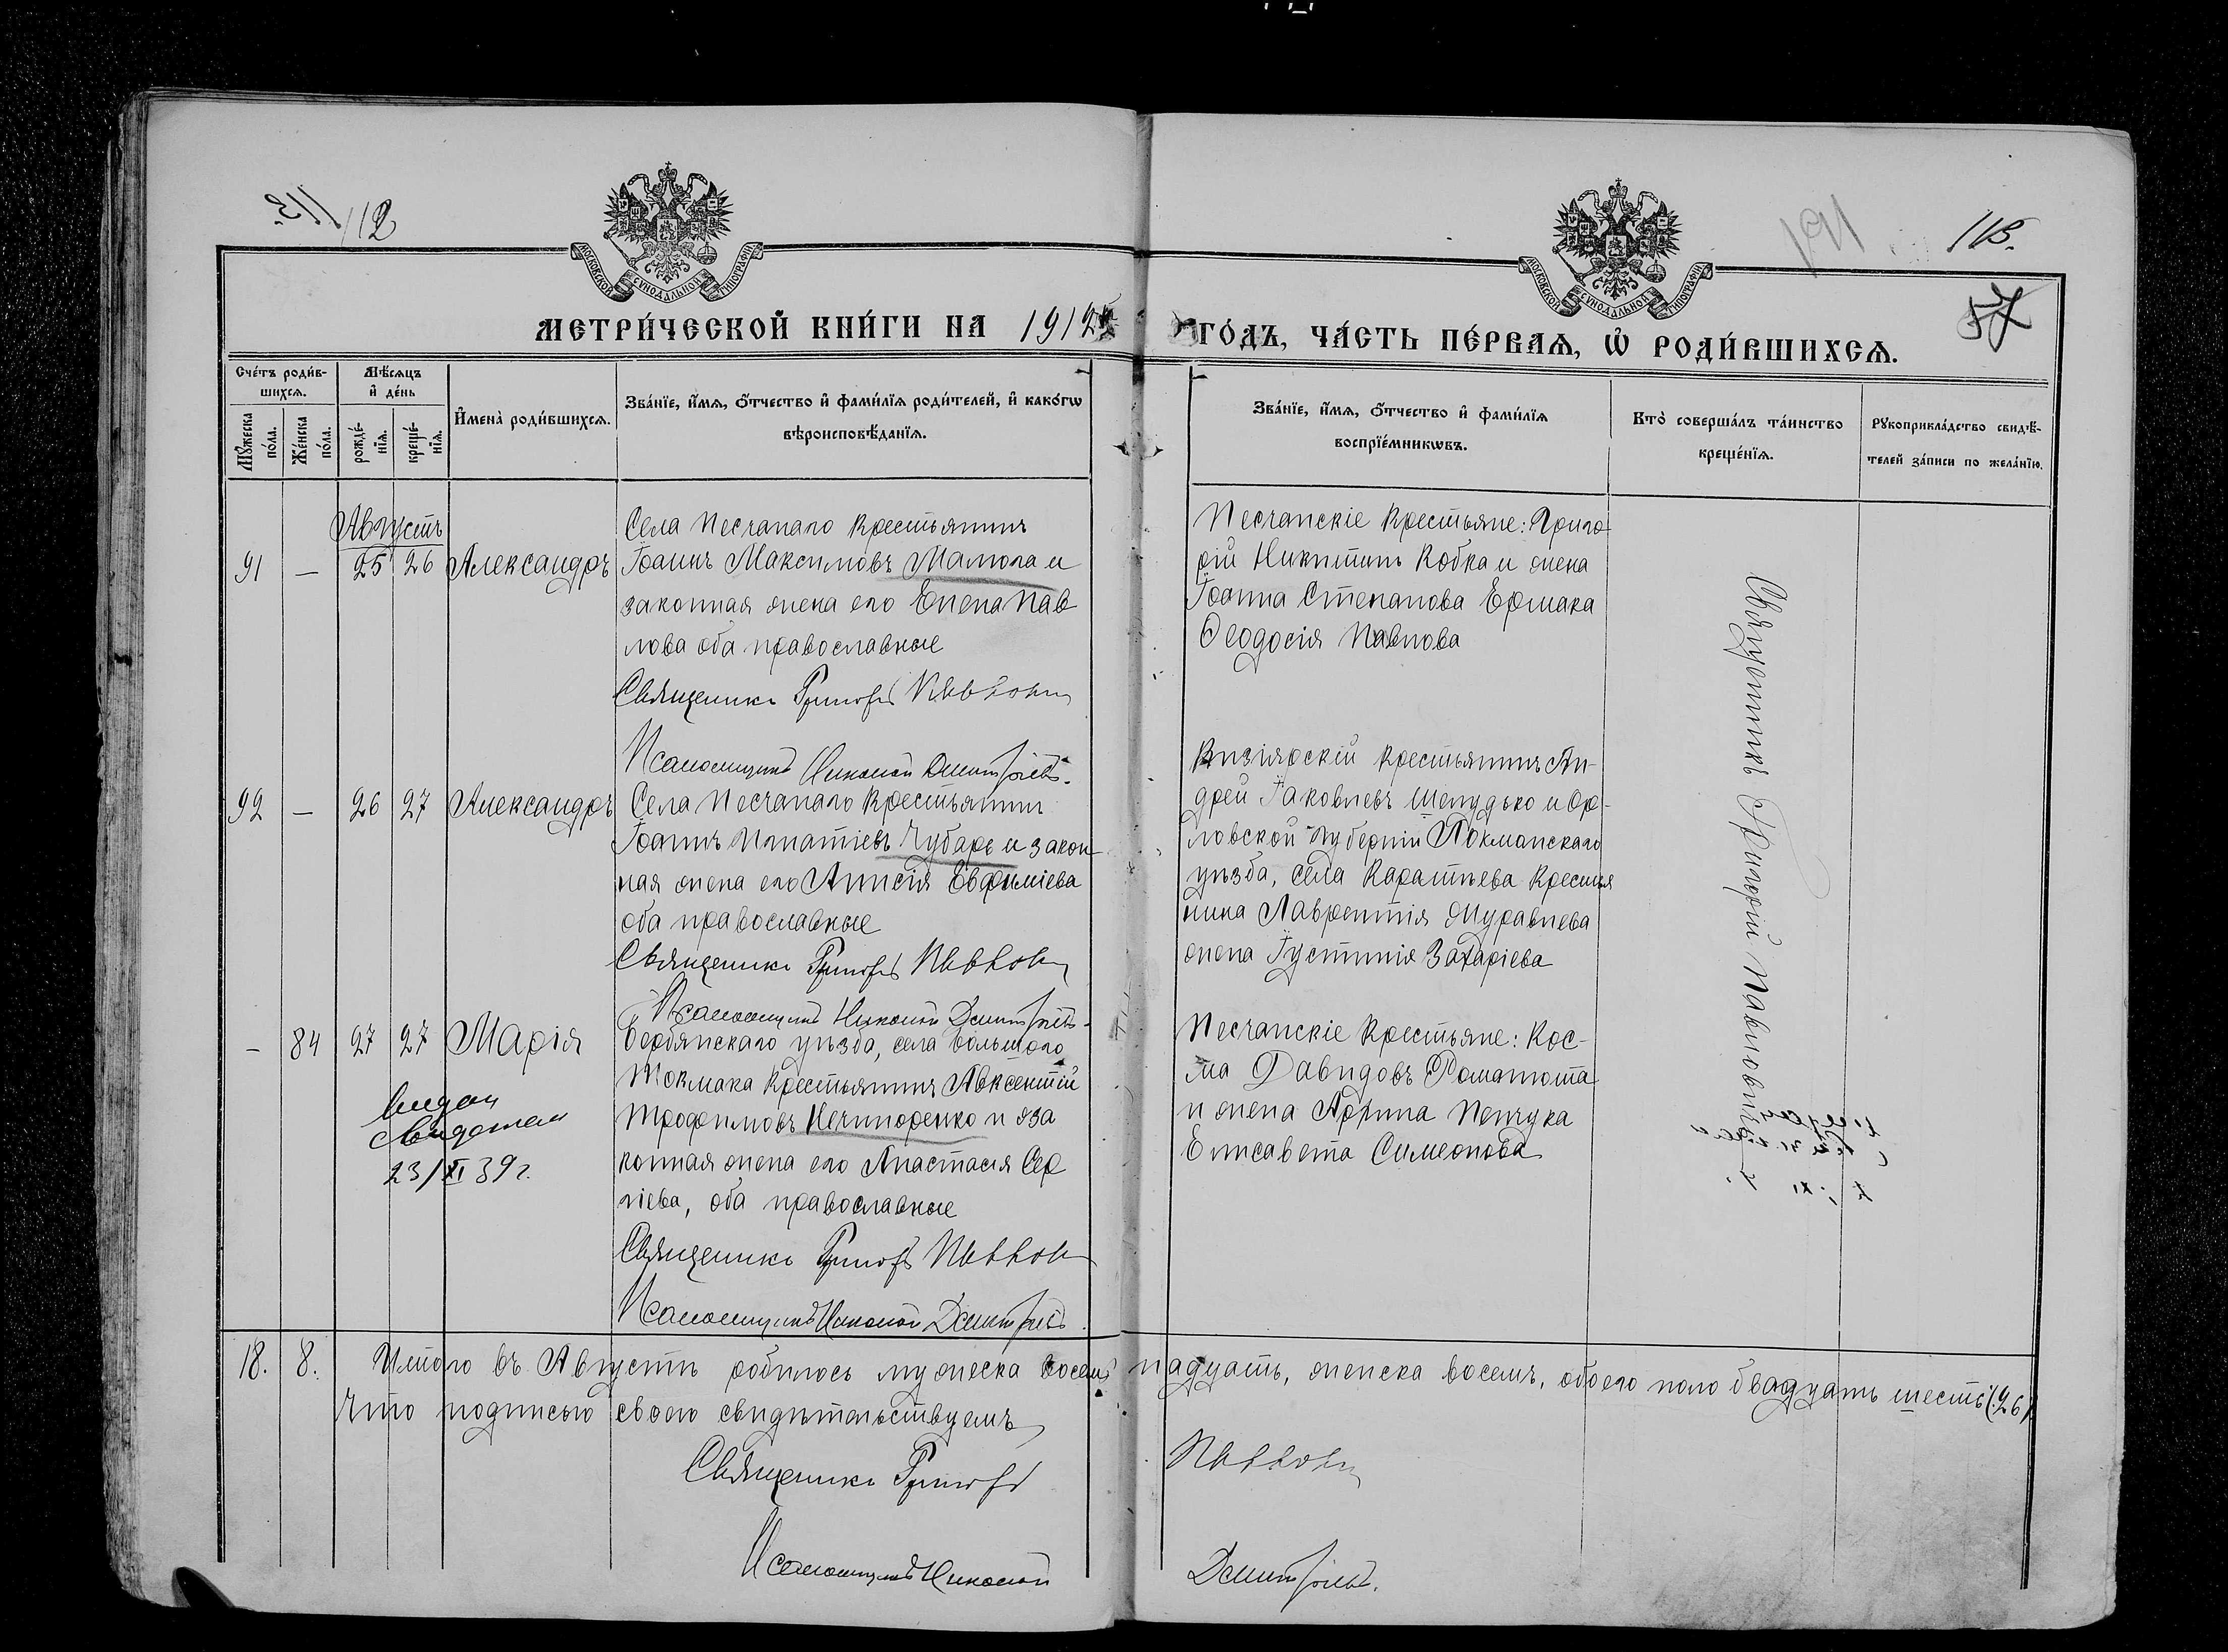 112
113.
57
МОСКОВСКОЙ СУНОДАЛЬНОЙ ТИПОГРАФІИ
МОСКОВСКОЙ СУНОДАЛЬНОЙ ТИПОГРАФІИ
МЕТРИ́ЧЕСКОЙ КНИ́ГИ НА 1912 ГО́ДЪ, ЧА́СТЬ ПЕ́РВАѦ, Ѡ҆ РОДИ́ВШИХСѦ.
Сче́тъ роди́в-
шихсѧ.
Мѹ́жеска
по́ла.
Же́нска
по́ла.
Мѣ́сѧцъ
и҆ де́нь
рожде́-
нїѧ.
креще́-
нїѧ.
И҆мена̀ роди́вшихсѧ.
Зва́нїе, и҆́мѧ, ѻ҆́тчество и҆ фами́лїѧ роди́телей, и҆ како́гѡ
вѣроисповѣ́данїѧ.
Зва́нїе, и҆́мѧ, ѻ҆́тчество и҆ фами́лїѧ
воспрїе́мникѡвъ.
Кто̀ соверша́лъ та́инство
креще́нїѧ.
Рѹкоприкла́дство свидѣ́-
телей за́писи по жела́нїю.
Августъ
91 — 25 26 Александръ
Села Песчанаго крестьянинъ
Іоаннъ Максимовъ Мамога и
законная жена его Елена Пав
лова оба православные
Священникъ Григорій Павлов
Псаломщикъ Николай Дмитріевъ.
Песчанскіе крестьяне: Григо-
рій Никитинъ Кобка и жена
Іоанна Степанова Ермака
Ѳеодосія Павлова
92 — 26 27 Александръ
Села Песчанаго крестьянинъ
Іоаннъ Игнатіевъ Чубарь и закон
ная жена его Аннсія Евфиміева
оба православные
Священникъ Григорій Павлов
Псаломщикъ Николай Дмитріевъ.
Кизіярскій крестьянинъ Ан-
дрей Іаковлевъ Шелудько и Ор-
ловской губерніи
уѣзда, села крестья
нина Лаврентія Журавлева
жена Іустинія Захаріева
— 84 27 27 Марія
Бердянскаго уѣзда, села Большого
Токмака крестьянинъ Авксентій
Трофимовъ Нечипоренко и за
конная жена его Анастасія Сер
гіева, оба православные
Священникъ Григорій Павлов
Псаломщикъ Николай Дмитріевъ.
Песчанскіе крестьяне: Кос-
ма Давидовъ Романюта
и жена Елисавета Симеонова
23/XI 39г.
Священникъ Григорій Павловъ
18. 8. Итого въ Августѣ родилось мужеска восемнадцать, женска восемь, обоего пола двадцать шесть (26)
Что подписью своею свидѣтельствуемъ
Священникъ Григорій Павлов
Псаломщикъ Николай Дмитріевъ.